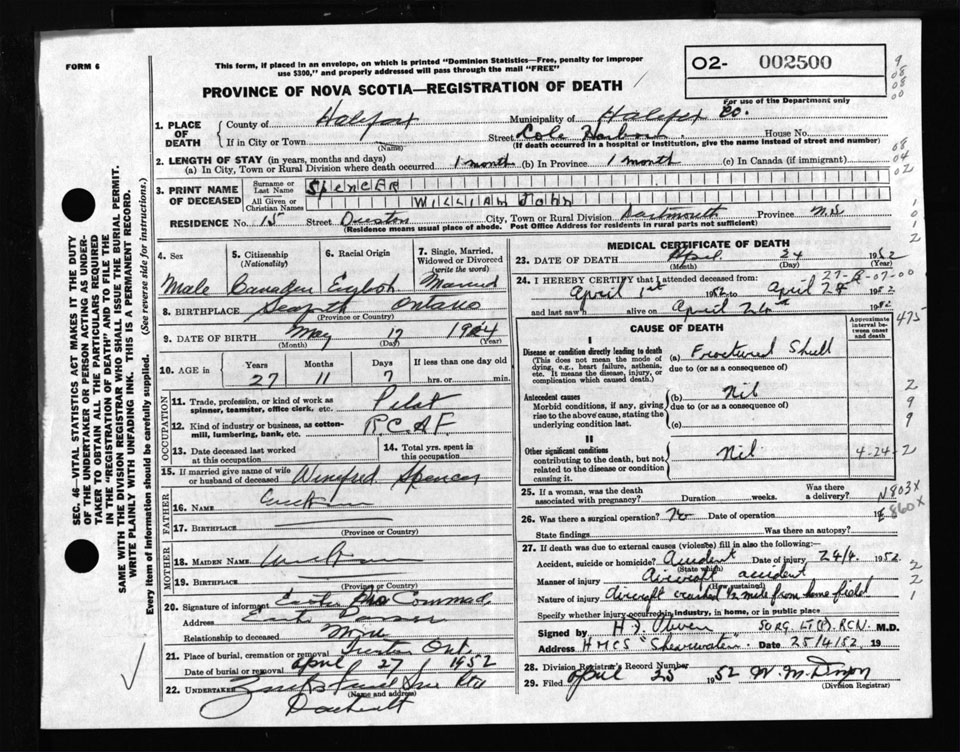 FORM 6
This form, if placed in an envelope, on which is printed "Dominion Statistics—Free, penalty for improper
use $300," and properly addressed will pass through the mail "FREE"
O2- 002500
PROVINCE OF NOVA SCOTIA—REGISTRATION OF DEATH
For use of the Department only
1. PLACE OF DEATH
County of Halifax Municipality of Halifax Co.
If in City or Town (Name) Street Cole Harbour House No.
(If death occurred in a hospital or institution, give the name instead of street and number)
2. LENGTH OF STAY (in years, months and days)
(a) In City, Town or Rural Division where death occurred 1 month (b) In Province 1 month (c) In Canada (if immigrant)
3. PRINT NAME OF DECEASED
Surname or Last Name SPENCER
All Given or Christian Names WILLIAM JOHN
RESIDENCE No. 15 Street City, Town or Rural Division Dartmouth Province N.S.
(Residence means usual place of abode. Post Office Address for residents in rural parts not sufficient)
4. Sex
5. Citizenship (Nationality)
6. Racial Origin
7. Single, Married, Widowed or Divorced (write the word)
Male Canadian English Married
8. BIRTHPLACE Seaforth Ontario
(Province or Country)
9. DATE OF BIRTH May 17 1924
(Month) (Day) (Year)
10. AGE in Years Months Days If less than one day old
27 11 7 hrs. or min.
OCCUPATION
11. Trade, profession, or kind of work as spinner, teamster, office clerk, etc. Pilot
12. Kind of industry or business, as cotton-mill, lumbering, bank, etc. R.C.A.F.
13. Date deceased last worked at this occupation
14. Total yrs. spent in this occupation
15. If married give name of wife or husband of deceased Winifred Spencer
FATHER
16. NAME
17. BIRTHPLACE
(Province or Country)
MOTHER
18. MAIDEN NAME
19. BIRTHPLACE
(Province or Country)
20. Signature of informant
Address
Relationship to deceased
21. Place of burial, cremation or removal Ont
Date of burial or removal April 27 1952
22. UNDERTAKER
(Name and address)
MEDICAL CERTIFICATE OF DEATH
23. DATE OF DEATH April 24 1952
(Month) (Day)
24. I HEREBY CERTIFY that I attended deceased from:
April 1st 1952 to April 24th 1952
and last saw alive on April 24th 1952
CAUSE OF DEATH
Approximate interval between onset and death
I
Disease or condition directly leading to death
(This does not mean the mode of dying, e.g., heart failure, asthenia, etc. It means the disease, injury, or complication which caused death.)
(a) Fractured Skull
due to (or as a consequence)
Antecedent causes
Morbid conditions, if any, giving rise to the above cause, stating the underlying condition last.
(b) Nil
due to (or as a consequence)
(c)
II
Other significant conditions
contributing to the death, but not related to the disease or condition causing it.
Nil
4-24-2
25. If a woman, was the death associated with pregnancy? Duration weeks. Was there a delivery?
N803X
26. Was there a surgical operation? No Date of operation 19
E860X
State findings Was there an autopsy?
27. If death was due to external causes (violence) fill in also the following:—
Accident, suicide or homicide? Accident Date of injury 24/4. 1952.
(State which)
Manner of injury Aircraft accident
(How sustained)
Nature of injury Aircraft crashed ½ mile from home field
Specify whether injury occurred in industry, in home, or in public place
Signed by SURG. LT (P). RCN. M.D.
Address HMCS "Shearwater" Date 25/4/52 19
28. Division Registrar's Record Number
29. Filed April 25 1952
(Division Registrar)
SEC. 46—VITAL STATISTICS ACT MAKES IT THE DUTY
OF THE UNDERTAKER OR PERSON ACTING AS UNDER-
TAKER TO OBTAIN ALL THE PARTICULARS REQUIRED
IN THE "REGISTRATION OF DEATH" AND TO FILE THE
SAME WITH THE DIVISION REGISTRAR WHO SHALL ISSUE THE BURIAL PERMIT.
WRITE PLAINLY WITH UNFADING INK. THIS IS A PERMANENT RECORD.
Every item of information should be carefully supplied. (See reverse side for instructions.)